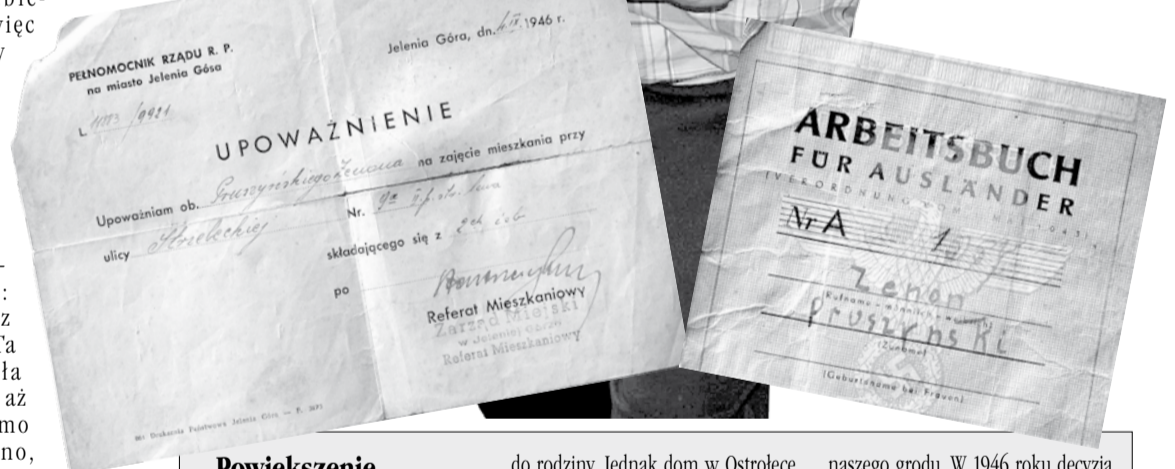 więc
y
PEŁNOMOCNIK RZĄDU R. P.
na miasto Jelenia Góra
L. /9921
Jelenia Góra, dn. 1946 r.
UPOWAŻNIENIE
Upoważniam ob. Pruszyńskiego Zenona na zajęcie mieszkania przy
ulicy Strzeleckiej Nr. 9a
składającego się z
po
Referat Mieszkaniowy
Zarząd Miejski
w Jeleniej Górze
Referat Mieszkaniowy
Drukarnia Państwowa Jelenia Góra
ARBEITSBUCH
FÜR AUSLÄNDER
Nr A 1
Zenon
Pruszyński
(Zuname)
(Geburtsname bei Frauen)
:
z
Ta
ła
aż
mo
no,
Powiększenie
do rodziny. Jednak dom w Ostrołęce
naszego grodu. W 1946 roku decyzją